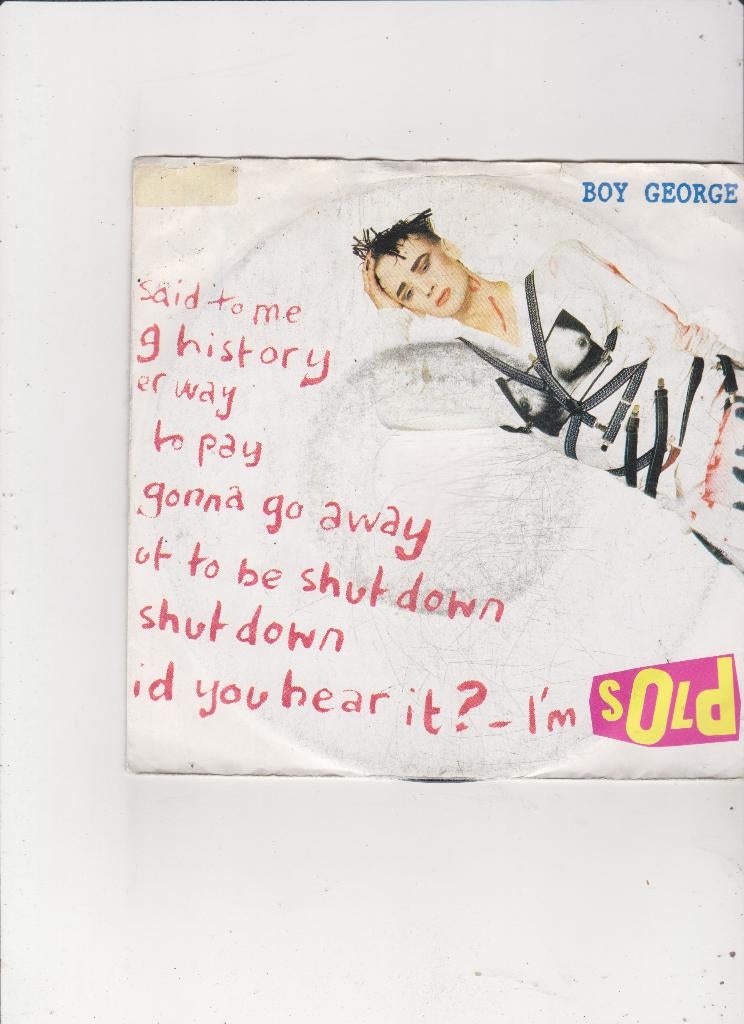 BOY GEORGE
said to me
g history
er way
to pay
gonna go away
ut to be shut down
shut down
id you hear it? - I'm SOLd